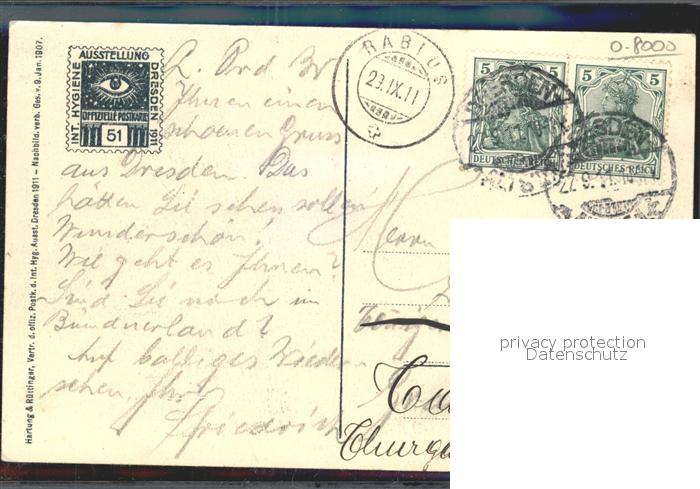 0-8000
Hartung & Rüttinger, Vertr. d. offiz. Postk. d. Int. Hyg. Ausst. Dresden 1911 – Nachbild. verb. Ges. v. 9. Jan. 1907.
AUSSTELLUNG
INT. HYGIENE
DRESDEN 1911
OFFIZIELLE POSTKARTE
51
RABIUS
23.IX.11
5 5
DEUTSCHES REICH
5 5
DEUTSCHES REICH
DRESDEN
Ihnen einen
schoenen Gruss
aus Dresden. Das
hätten Sie sehen sollen
Wunderschön!
Wie geht es Ihnen?
Sind Sie noch im
Bündnerland?
Auf baldiges Wieder-
sehen, Ihr
Friedrich
Herrn
Thurga
privacy protection
Datenschutz